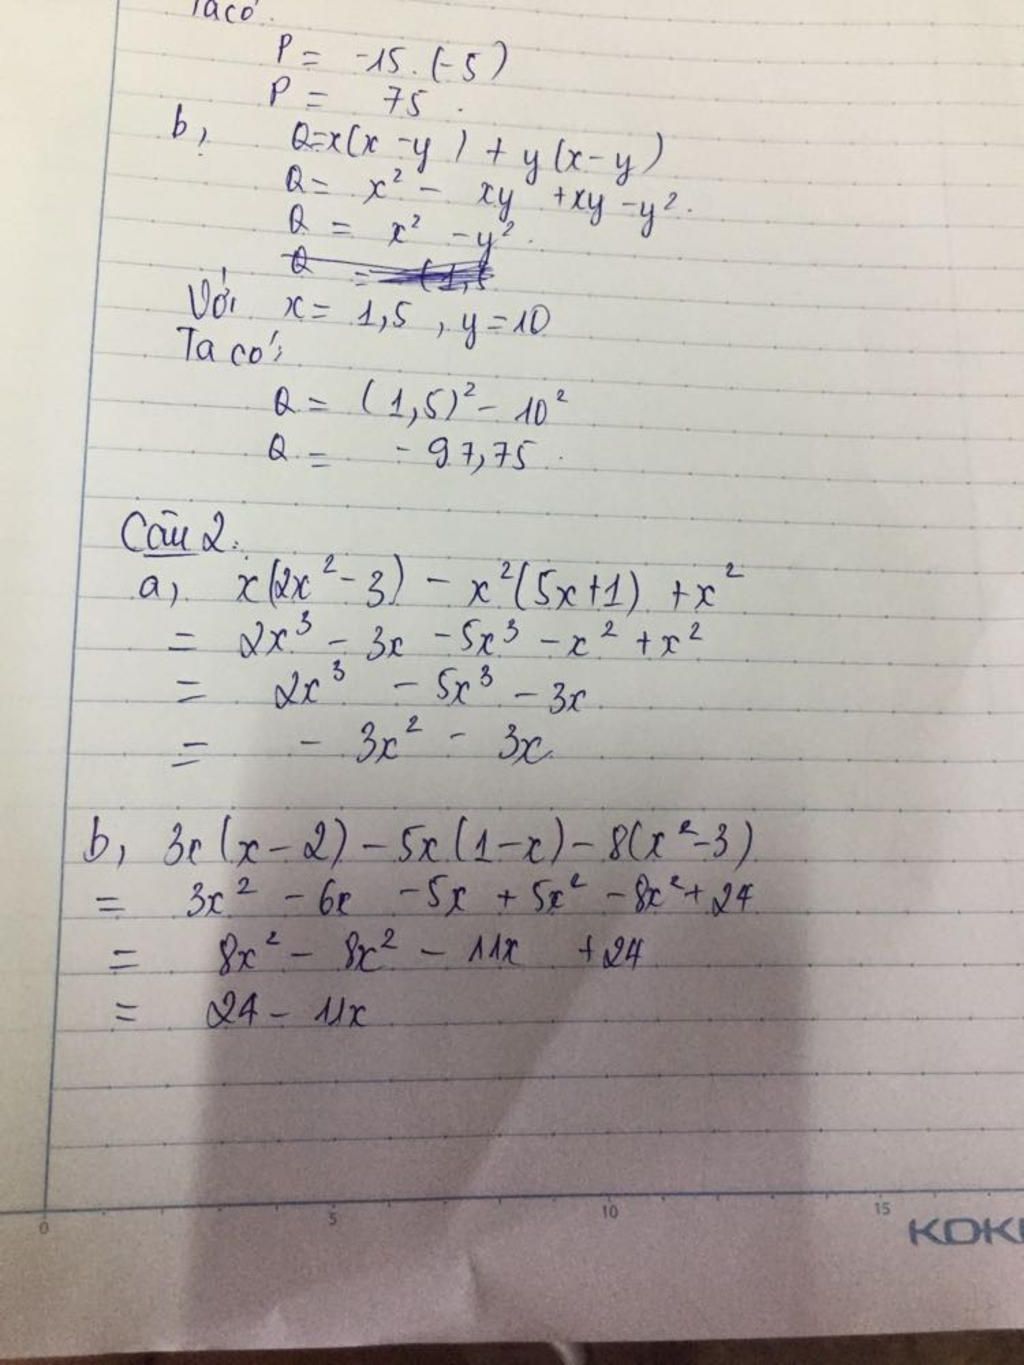 Ta có
P = -15.(-5)
P = 75.
b, Q=x(x-y) + y(x-y)
Q = x² - xy +xy -y².
Q = x² -y².
Với x = 1,5, y=10
Ta có:
Q = (1,5)² - 10²
Q = - 97,75.
Câu 2.
a, x(2x²-3) - x²(5x+1) +x²
= 2x³ - 3x -5x³ -x² +x²
= 2x³ - 5x³ - 3x.
= - 3x² - 3x.
b, 3x(x-2) - 5x(1-x) - 8(x²-3)
= 3x² - 6x -5x + 5x² - 8x² + 24
= 8x² - 8x² - 11x +24
= 24 - 11x
0 5 10 15